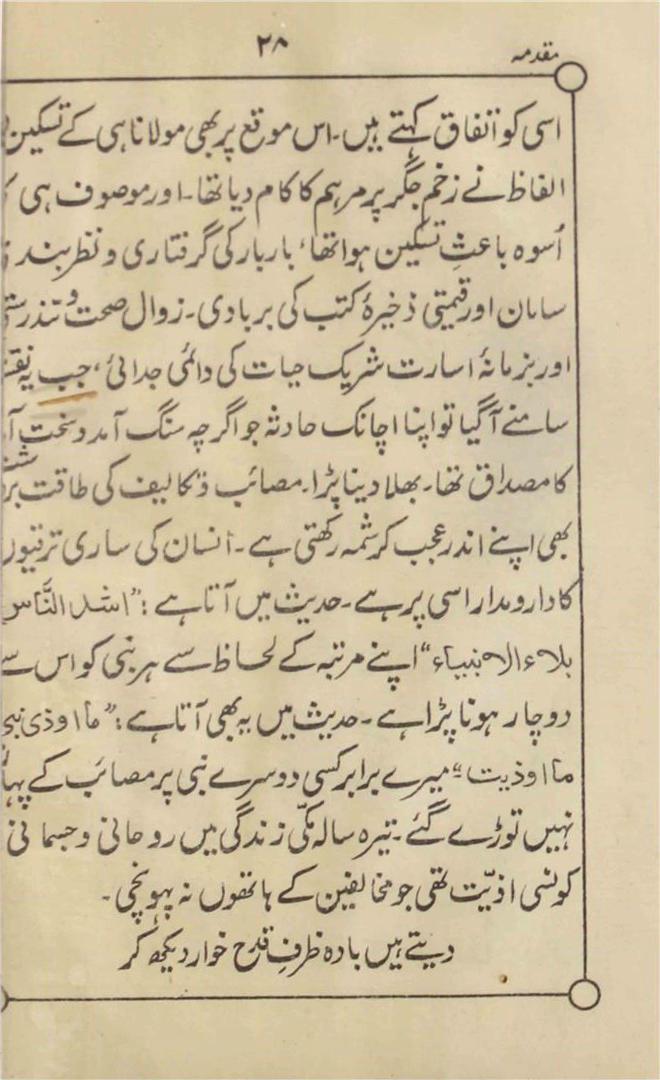 مقدمہ
۲۸
اسی کو اتفاق کہتے ہیں۔ اس موقع پر بھی مولانا ہی کے تسکین
الفاظ نے زخم جگر پر مرہم کا کام دیا تھا۔ اور موصوف ہی
اُسوہ باعثِ تسکین ہوا تھا، بار بار کی گرفتاری و نظر بند
سامان اور قیمتی ذخیرۂ کتب کی بربادی۔ زوال صحت و تندرستی
اور بزمانۂ اسارت شریک حیات کی دائمی جدائی، جب یہ نقشہ
سامنے آگیا تو اپنا اچانک حادثہ جو اگرچہ سنگ آمد و سخت آ
کا مصداق تھا۔ بھلا دینا پڑا۔ مصائب و تکالیف کی طاقت
بھی اپنے اندر عجب کرشمہ رکھتی ہے۔ انسان کی ساری ترقیوں
کا دارومدار اسی پر ہے۔ حدیث میں آتا ہے: "اشد الناس
بلاء الانبیاء" اپنے مرتبہ کے لحاظ سے ہر نبی کو اس سے
دوچار ہونا پڑا ہے۔ حدیث میں یہ بھی آتا ہے: "ما اوذی نبی
ما اوذیت" میرے برابر کسی دوسرے نبی پر مصائب کے پہاڑ
نہیں توڑے گئے۔ تیرہ سالہ مکی زندگی میں روحانی و جسمانی
کونسی اذیّت تھی جو مخالفین کے ہاتھوں نہ پہونچی۔
دیتے ہیں بادہ ظرفِ قدح خوار دیکھ کر